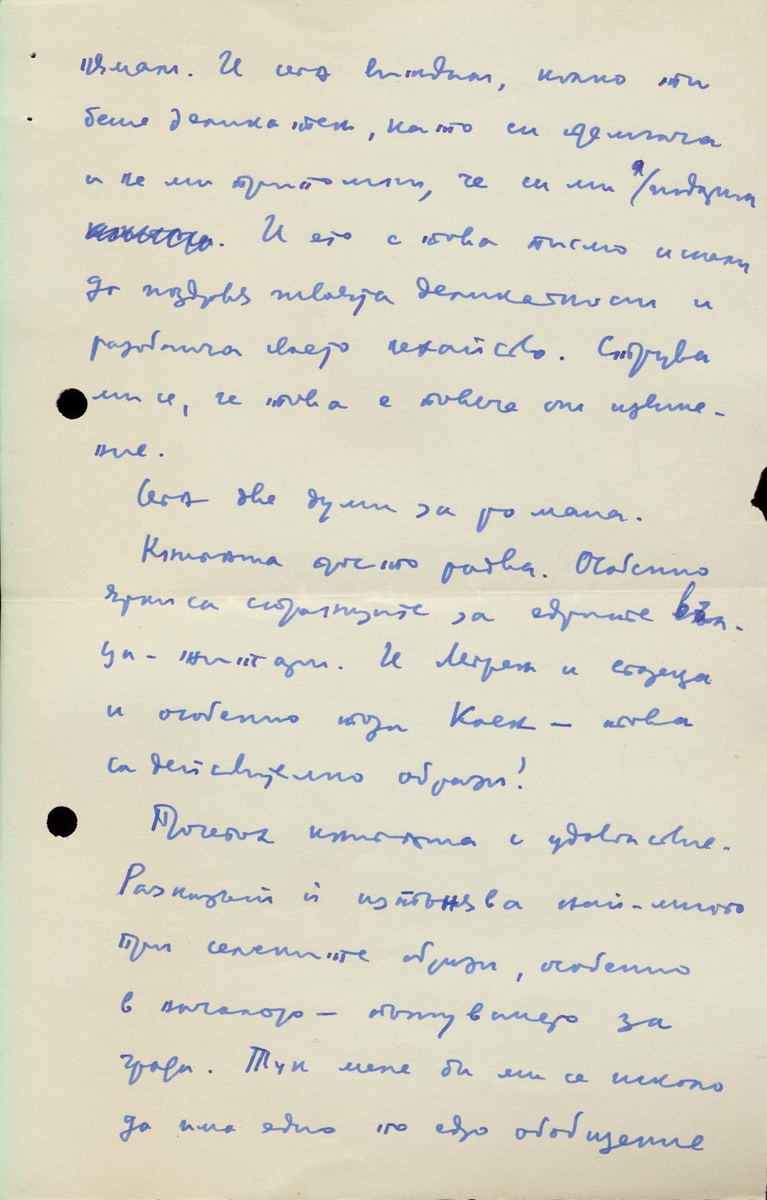 нямам. И сега виждам, колко ти
беше деликатен, като си премълча
и не ми припомни, че си ми я/подарил
. И ето с това писмо искам
да поздравя твоята деликатност и
разоблича моето нехайство. Струва
ми се, че това е повече от извине-
ние.
Сега две думи за романа.
Книгата просто радва. Особено
ярки са страниците за едрите
И и стареца
и особено този Коен — това
са действително образи!
Прочетох книгата с удоволствие.
Разказът ѝ изтънява най-много
при селските образи, особено
в началото — пътуването за
града. Тук мене би ми се искало
да има едно по едро обобщение